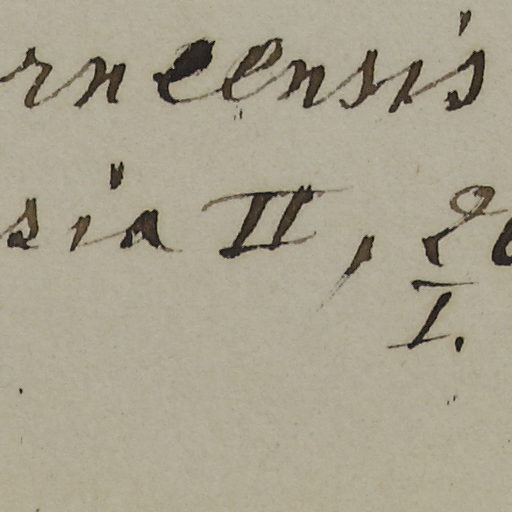 rneensis
sia II, 2
I.